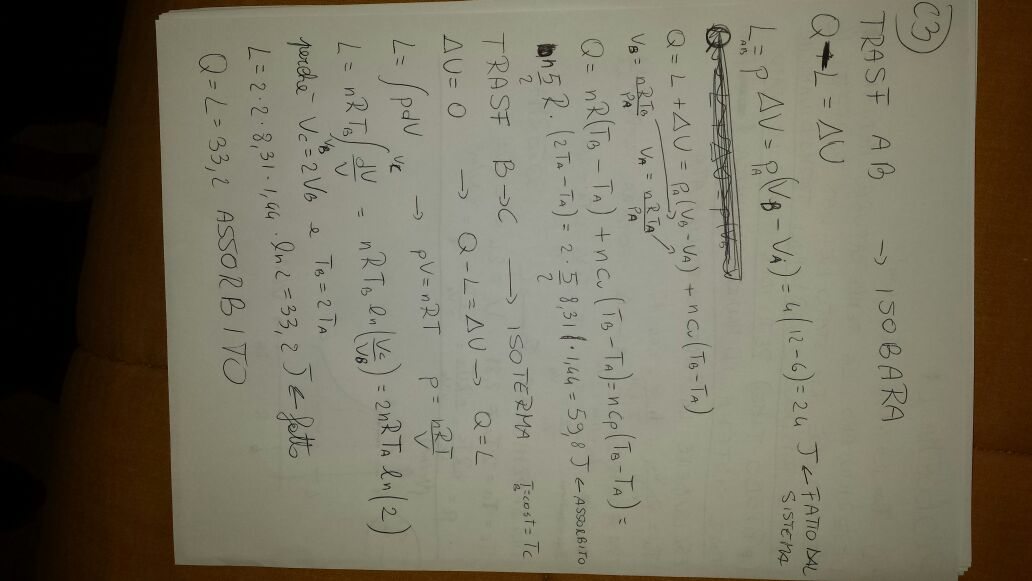 C3
TRAST AB → ISOBARA
Q - L = ΔU
L_AB = p ΔV = p_A (V_B - V_A) = 4(12-6) = 24 J ← FATTO DAL SISTEMA
Q = L + ΔU = p_A (V_B - V_A) + n c_v (T_B - T_A)
V_B = nRT_B/p_A V_A = nRT_A/p_A
Q = nR(T_B - T_A) + n c_v (T_B - T_A) = n c_p (T_B - T_A) =
n 5/2 R · (2T_A - T_A) = 2 · 5/2 8,31 · 1,44 = 59,8 J ← ASSORBITO
TRAST B→C → ISOTERMA T_B = cost = T_C
ΔU = 0 → Q - L = ΔU → Q = L
L = ∫ p dV → pV = nRT p = nRT/V
L = nRT_B ∫_{V_B}^{V_C} dV/V = nRT_B ln(V_C/V_B) = 2nRT_A ln(2)
perchè V_C = 2V_B e T_B = 2T_A
L = 2 · 2 · 8,31 · 1,44 · ln 2 = 33,2 J ← fatto
Q = L = 33,2 ASSORBITO